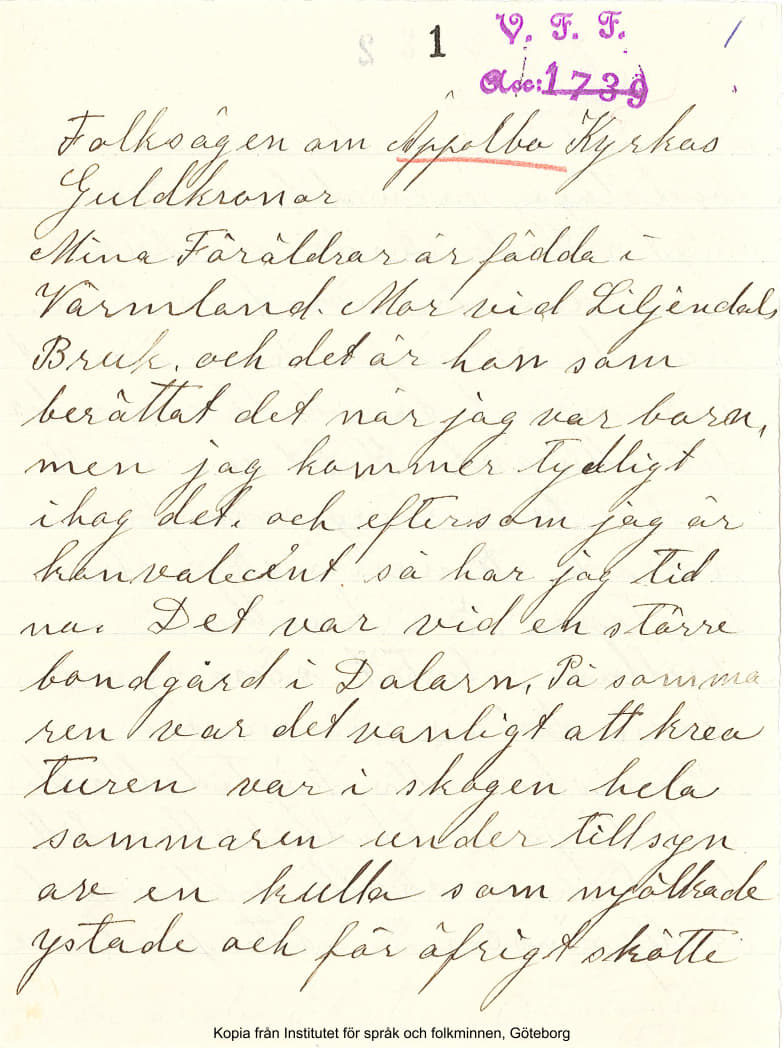 1
V. F. F.
Acc: 1739
Folksägen om Äppelbo Kyrkas
Guldkronor
Mina Föräldrar är födda i
Värmland. Mor vid Liljendals
Bruk, och det är hon som
berättat det när jag var barn,
men jag kommer tydligt
ihog det. och eftersom jag är
konvalecent så har jag tid
nu. Det var vid en större
bondgård i Dalarn, På somma
ren var det vanligt att krea
turen var i skogen hela
sommaren under tillsyn
av en kulla som mjölkade
ystade och för öfrigt skötte
Kopia från Institutet för språk och folkminnen, Göteborg